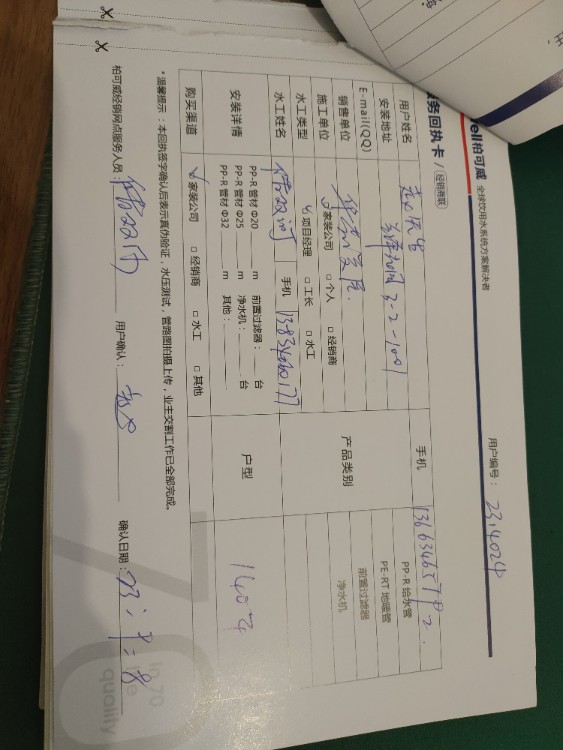 ell柏可威 全球饮用水系统方案解决者
用户编号： 2314024
务回执卡 / 经销商联
用户姓名
手机 13663465792
安装地址 3-2-1001
E-mail(QQ)
销售单位
施工单位 ✓家装公司 □ 个人 □ 经销商
水工类型 项目经理 □ 工长 □ 水工
水工姓名 手机
产品类别 PP-R 给水管
PE-RT 地暖管
前置过滤器
净水机
安装详情 PP-R 管材 Φ20 ____ m 前置过滤器： ____ 台
PP-R 管材 Φ25 ____ m 净水机： ____ 台
PP-R 管材 Φ32 ____ m 其他： ____
户型 140平
购买渠道 ✓家装公司 □ 经销商 □ 水工 □ 其他
*温馨提示：本回执签字确认后表示真伪验证，水压测试，管路图拍摄上传，业主交割工作已全部完成。
柏可威经销网点服务人员： 用户确认： 确认日期：23：9：8
in 70
quality